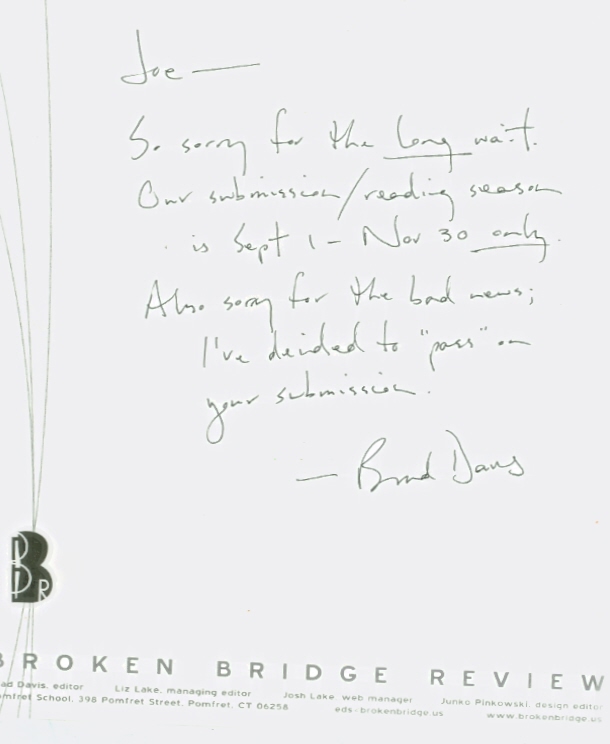 Joe —
So sorry for the long wait.
Our submission/reading season
is Sept 1 - Nov 30 only.
Also sorry for the bad news;
I've decided to "pass" on
your submission.
— Brad Davis
BBR
BROKEN BRIDGE REVIEW
ad Davis, editor Liz Lake, managing editor Josh Lake, web manager Junko Pinkowski, design editor
omfret School, 398 Pomfret Street, Pomfret, CT 06258 eds@brokenbridge.us www.brokenbridge.us